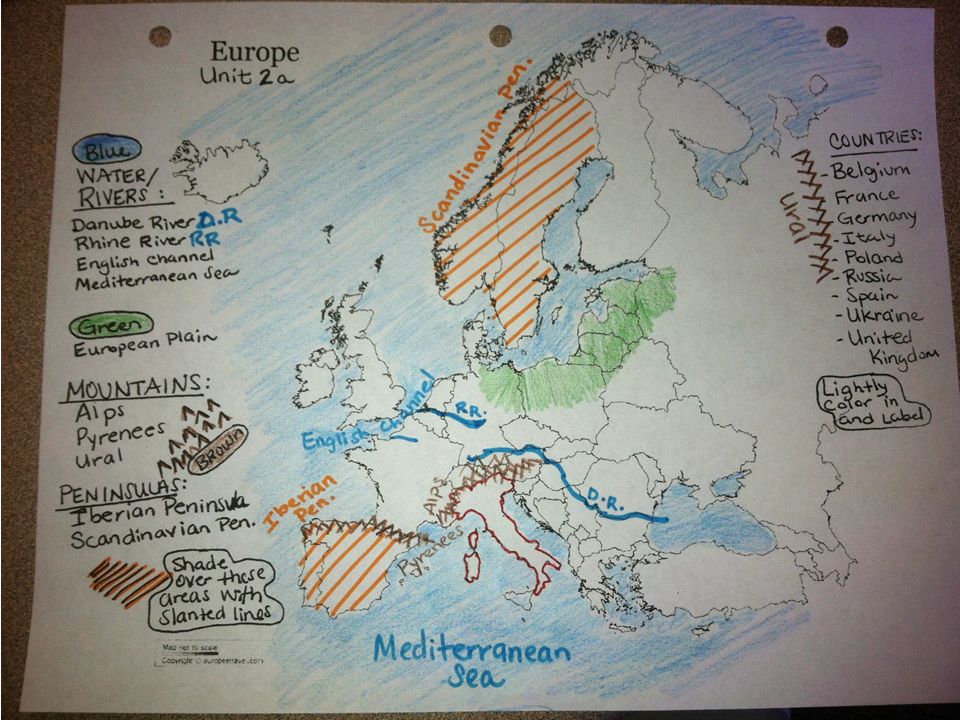 Europe
Unit 2a
Blue
WATER/
RIVERS:
Danube River D.R
Rhine River RR
English Channel
Mediterranean Sea
Green
European Plain
MOUNTAINS:
Alps
Pyrenees
Ural
BROWN
PENINSULAS:
Iberian Peninsula
Scandinavian Pen.
Shade
over these
areas with
slanted lines
Map not to scale
Copyright © europetravel.com
Scandinavian Pen.
English Channel
RR.
Iberian
Pen.
Alps
Pyrenees
D.R.
Mediterranean
Sea
Ural
COUNTRIES:
- Belgium
France
Germany
- Italy
- Poland
- Russia
- Spain
- Ukraine
- United
Kingdom
Lightly
Color in
and Label